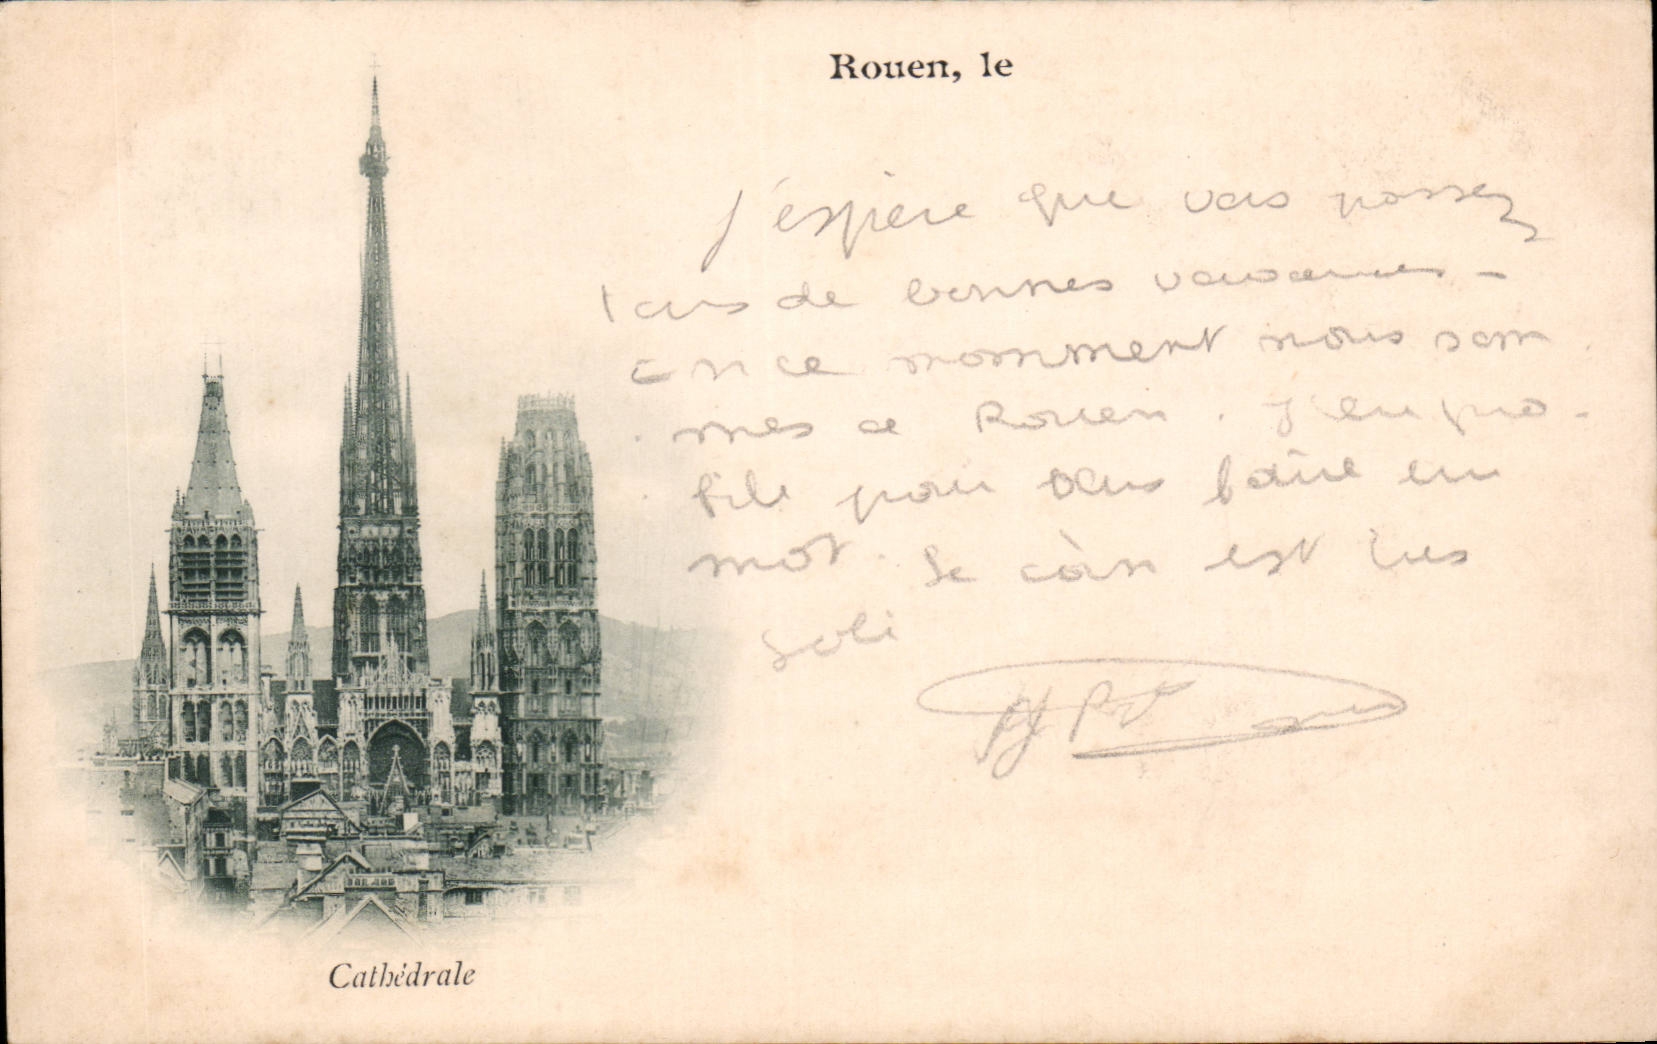 Rouen, le
J'espère que vous passez
tous de bonnes vacances -
En ce momment nous som
mes a Rouen. J'en pro-
file pour vous faire un
mot. Le coin est tres
joli
Cathédrale